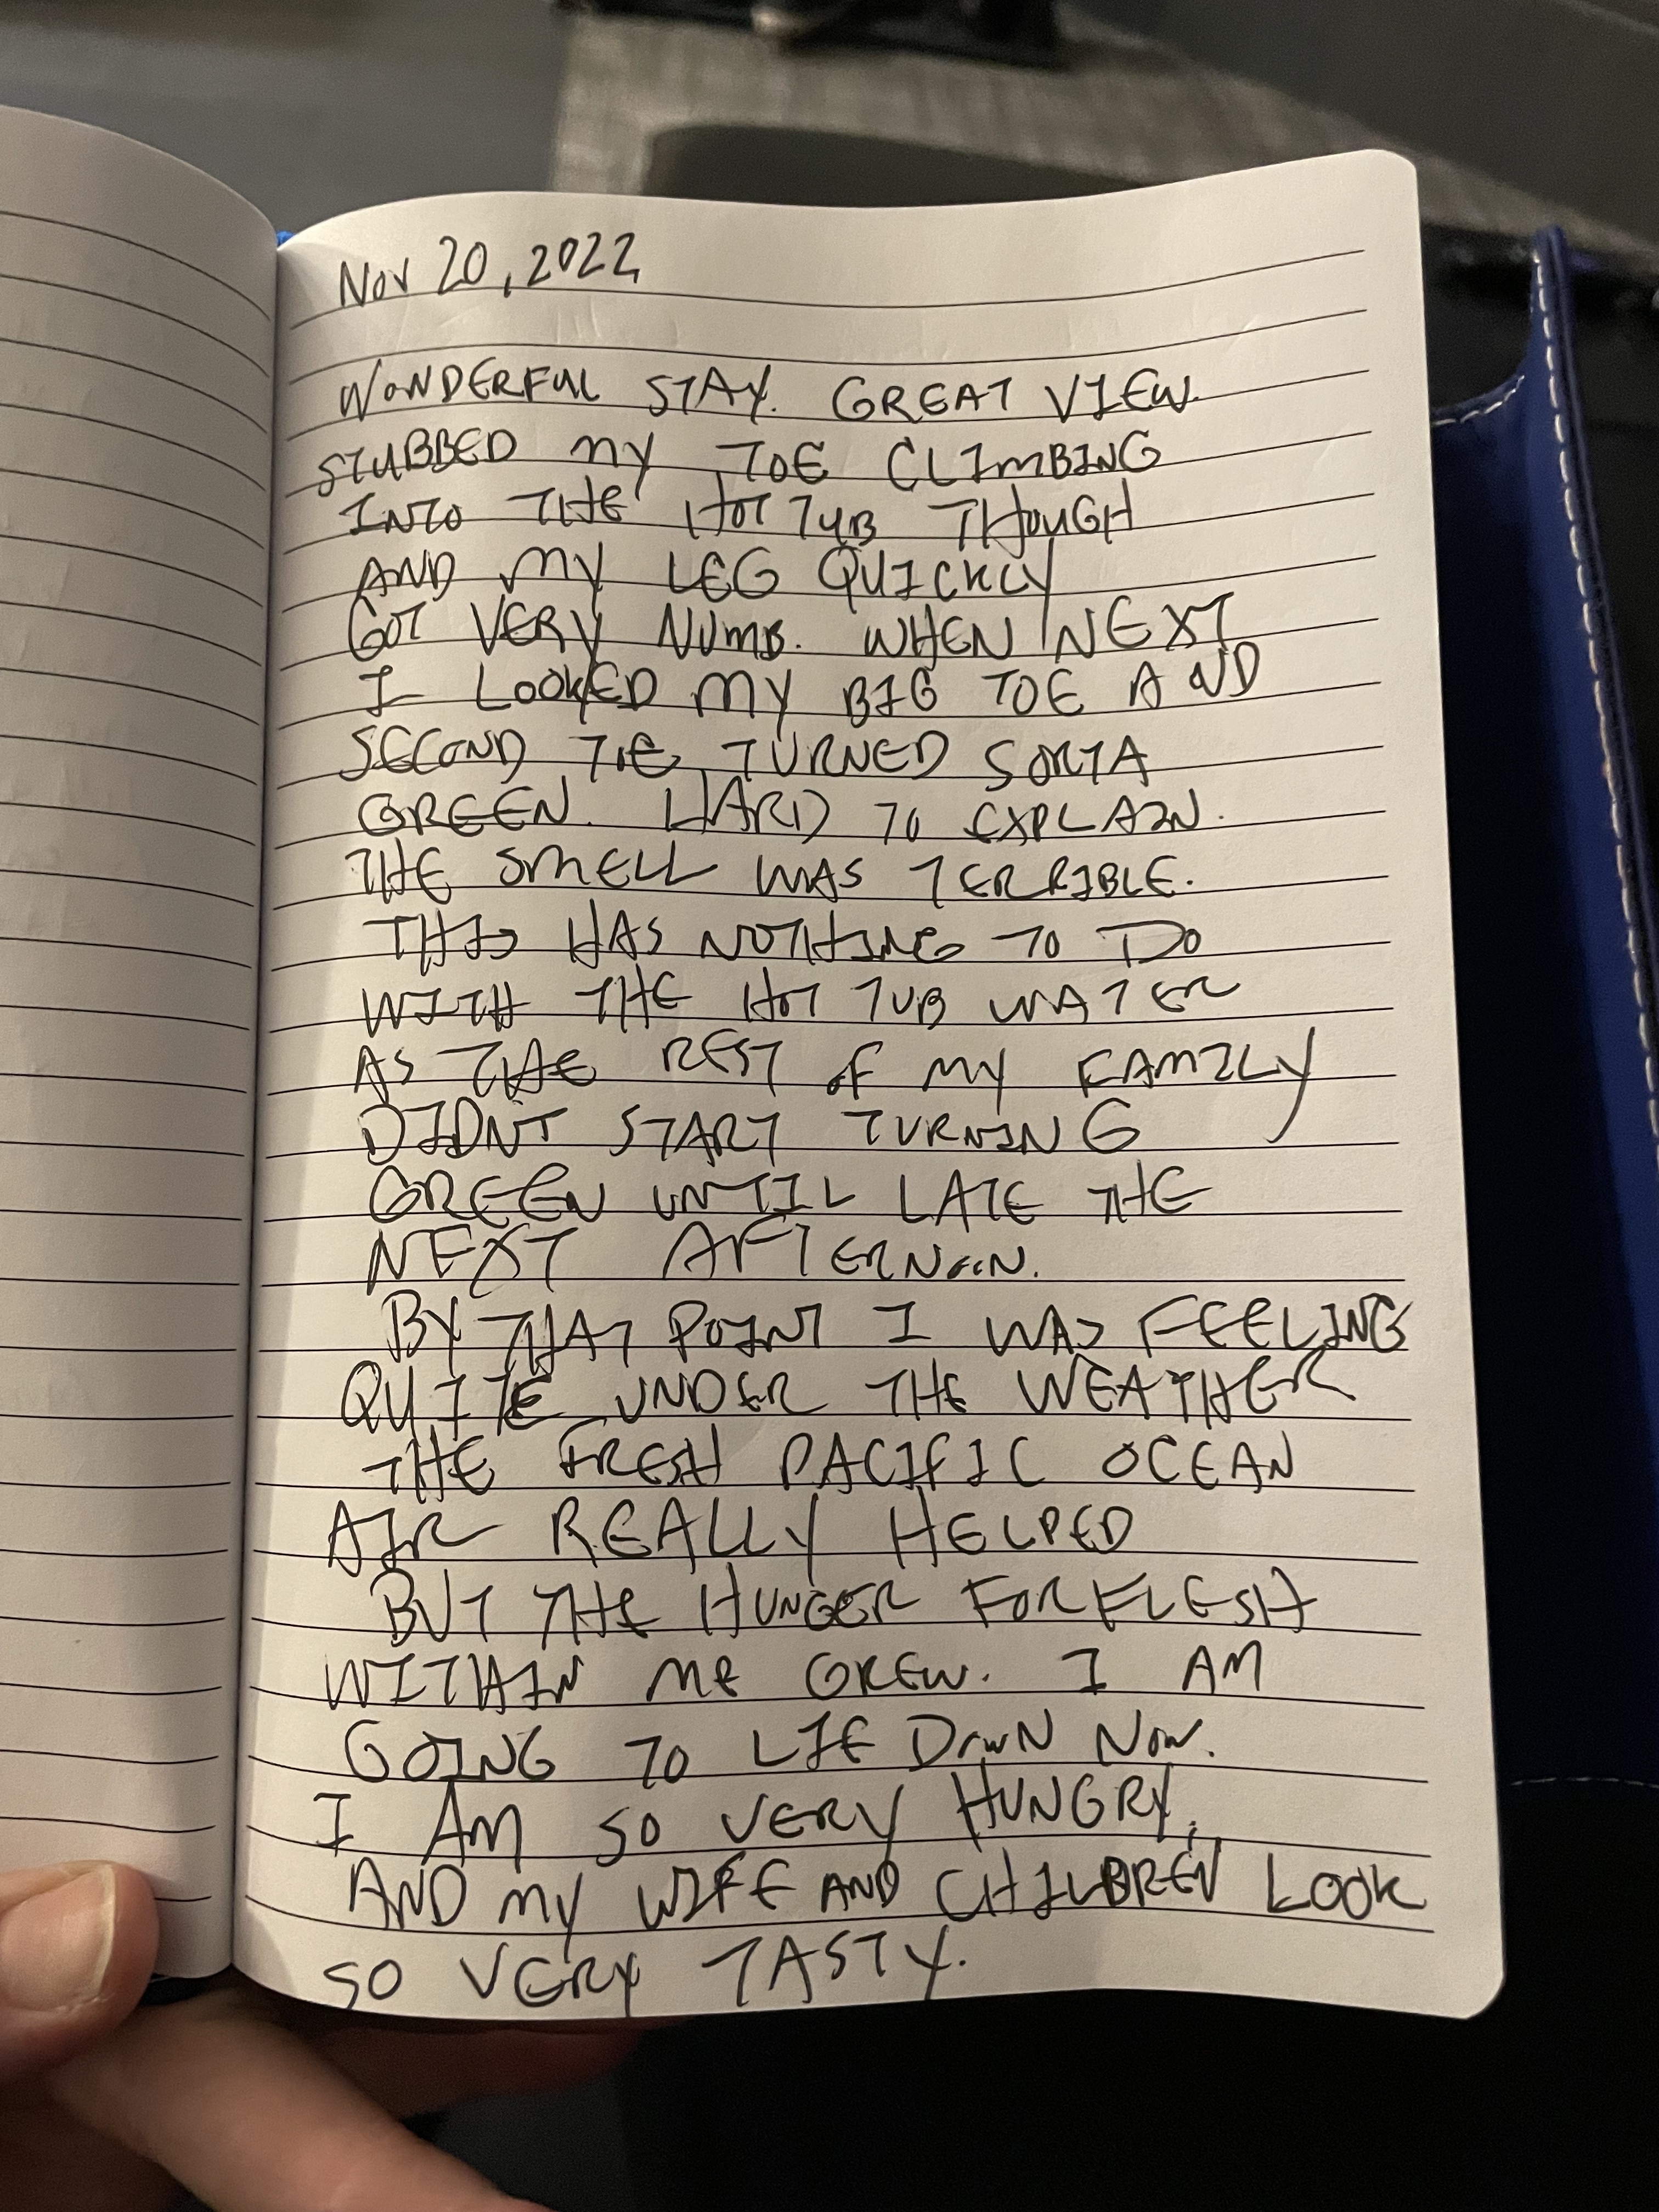 Nov 20, 2022
WONDERFUL STAY. GREAT VIEW.
STUBBED MY TOE CLIMBING
INTO THE HOT TUB THOUGH
AND MY LEG QUICKLY
GOT VERY NUMB. WHEN NEXT
I LOOKED MY BIG TOE AND
SECOND TOE TURNED SORTA
GREEN. HARD TO EXPLAIN.
THE SMELL WAS TERRIBLE.
THIS HAS NOTHING TO DO
WITH THE HOT TUB WATER
AS THE REST OF MY FAMILY
DIDNT START TURNING
GREEN UNTIL LATE THE
NEXT AFTERNOON.
BY THAT POINT I WAS FEELING
QUITE UNDER THE WEATHER
THE FRESH PACIFIC OCEAN
AIR REALLY HELPED
BUT THE HUNGER FOR FLESH
WITHIN ME GREW. I AM
GOING TO LIE DOWN NOW.
I AM SO VERY HUNGRY,
AND MY WIFE AND CHILDREN LOOK
SO VERY TASTY.